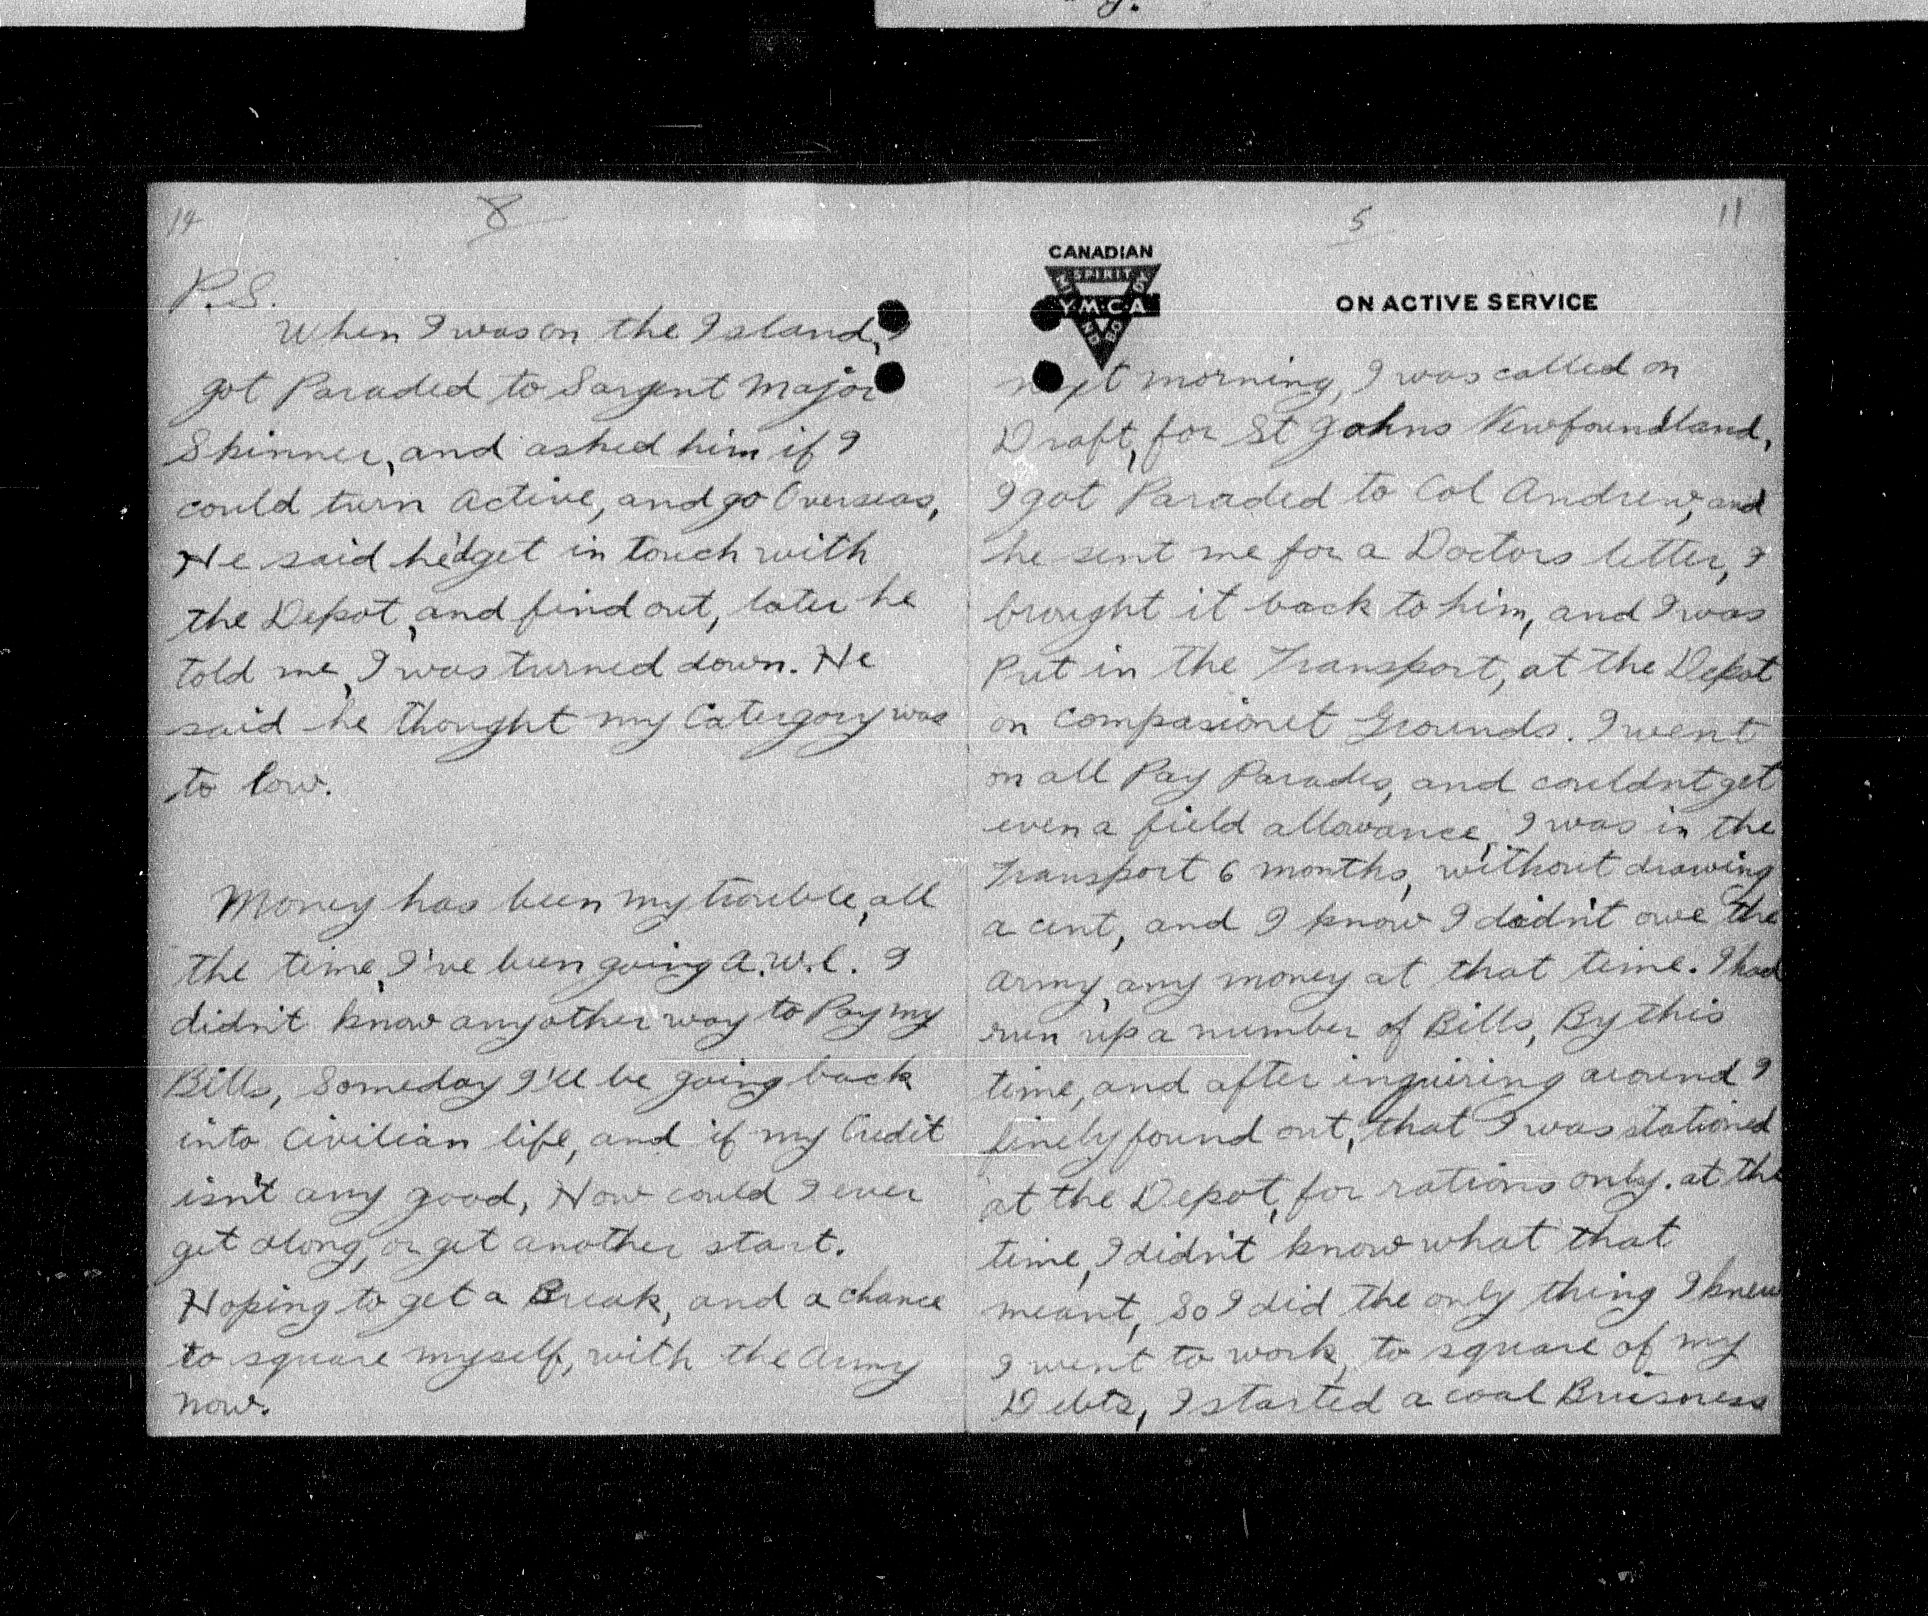 14
8
P.S.
When I was on the Island, I
got Paraded to Sargent Major
Skinner, and asked him if I
could turn active, and go Overseas,
He said he'd get in touch with
the Depot, and find out, later he
told me, I was turned down. He
said he thought my Catergory was
to low.
Money has been my trouble, all
the time, I've been going A.W.L. I
didn't know any other way to Pay my
Bills, Someday I'll be going back
into Civilian life, and if my Credit
isn't any good, How could I ever
get along, or get another start.
Hoping to get a Break, and a chance
to square myself, with the Army
now.
5
11
CANADIAN
SPIRIT
MIND
BODY
Y.M.C.A.
ON ACTIVE SERVICE
next morning, I was called on
Draft, for St Johns Newfoundland,
I got Paraded to Col Andrew, and
he sent me for a Doctors letter, I
brought it back to him, and I was
Put in the Transport, at the Depot
on compasionet Grounds. I went
on all Pay Parades, and couldn't get
even a field allowance, I was in the
Transport 6 months, without drawing
a cent, and I know I didn't owe the
army, any money at that time. I had
run up a number of Bills, By this
time, and after inquiring around I
finely found out, that I was stationed
at the Depot, for rations only. at the
time, I didn't know what that
meant, So I did the only thing I knew
I went to work, to square of my
Debts, I started a coal Bruisness